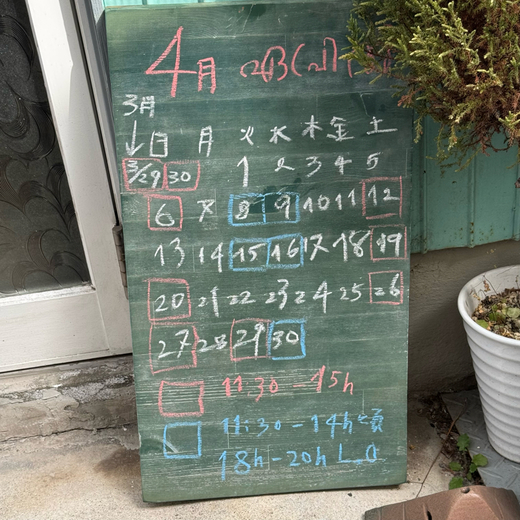 4月
3月
↓日 月 火 水 木 金 土
3/29 30 1 2 3 4 5
6 7 8 9 10 11 12
13 14 15 16 17 18 19
20 21 22 23 24 25 26
27 28 29 30
11:30-15h
11:30-14h
18h-20h L.O